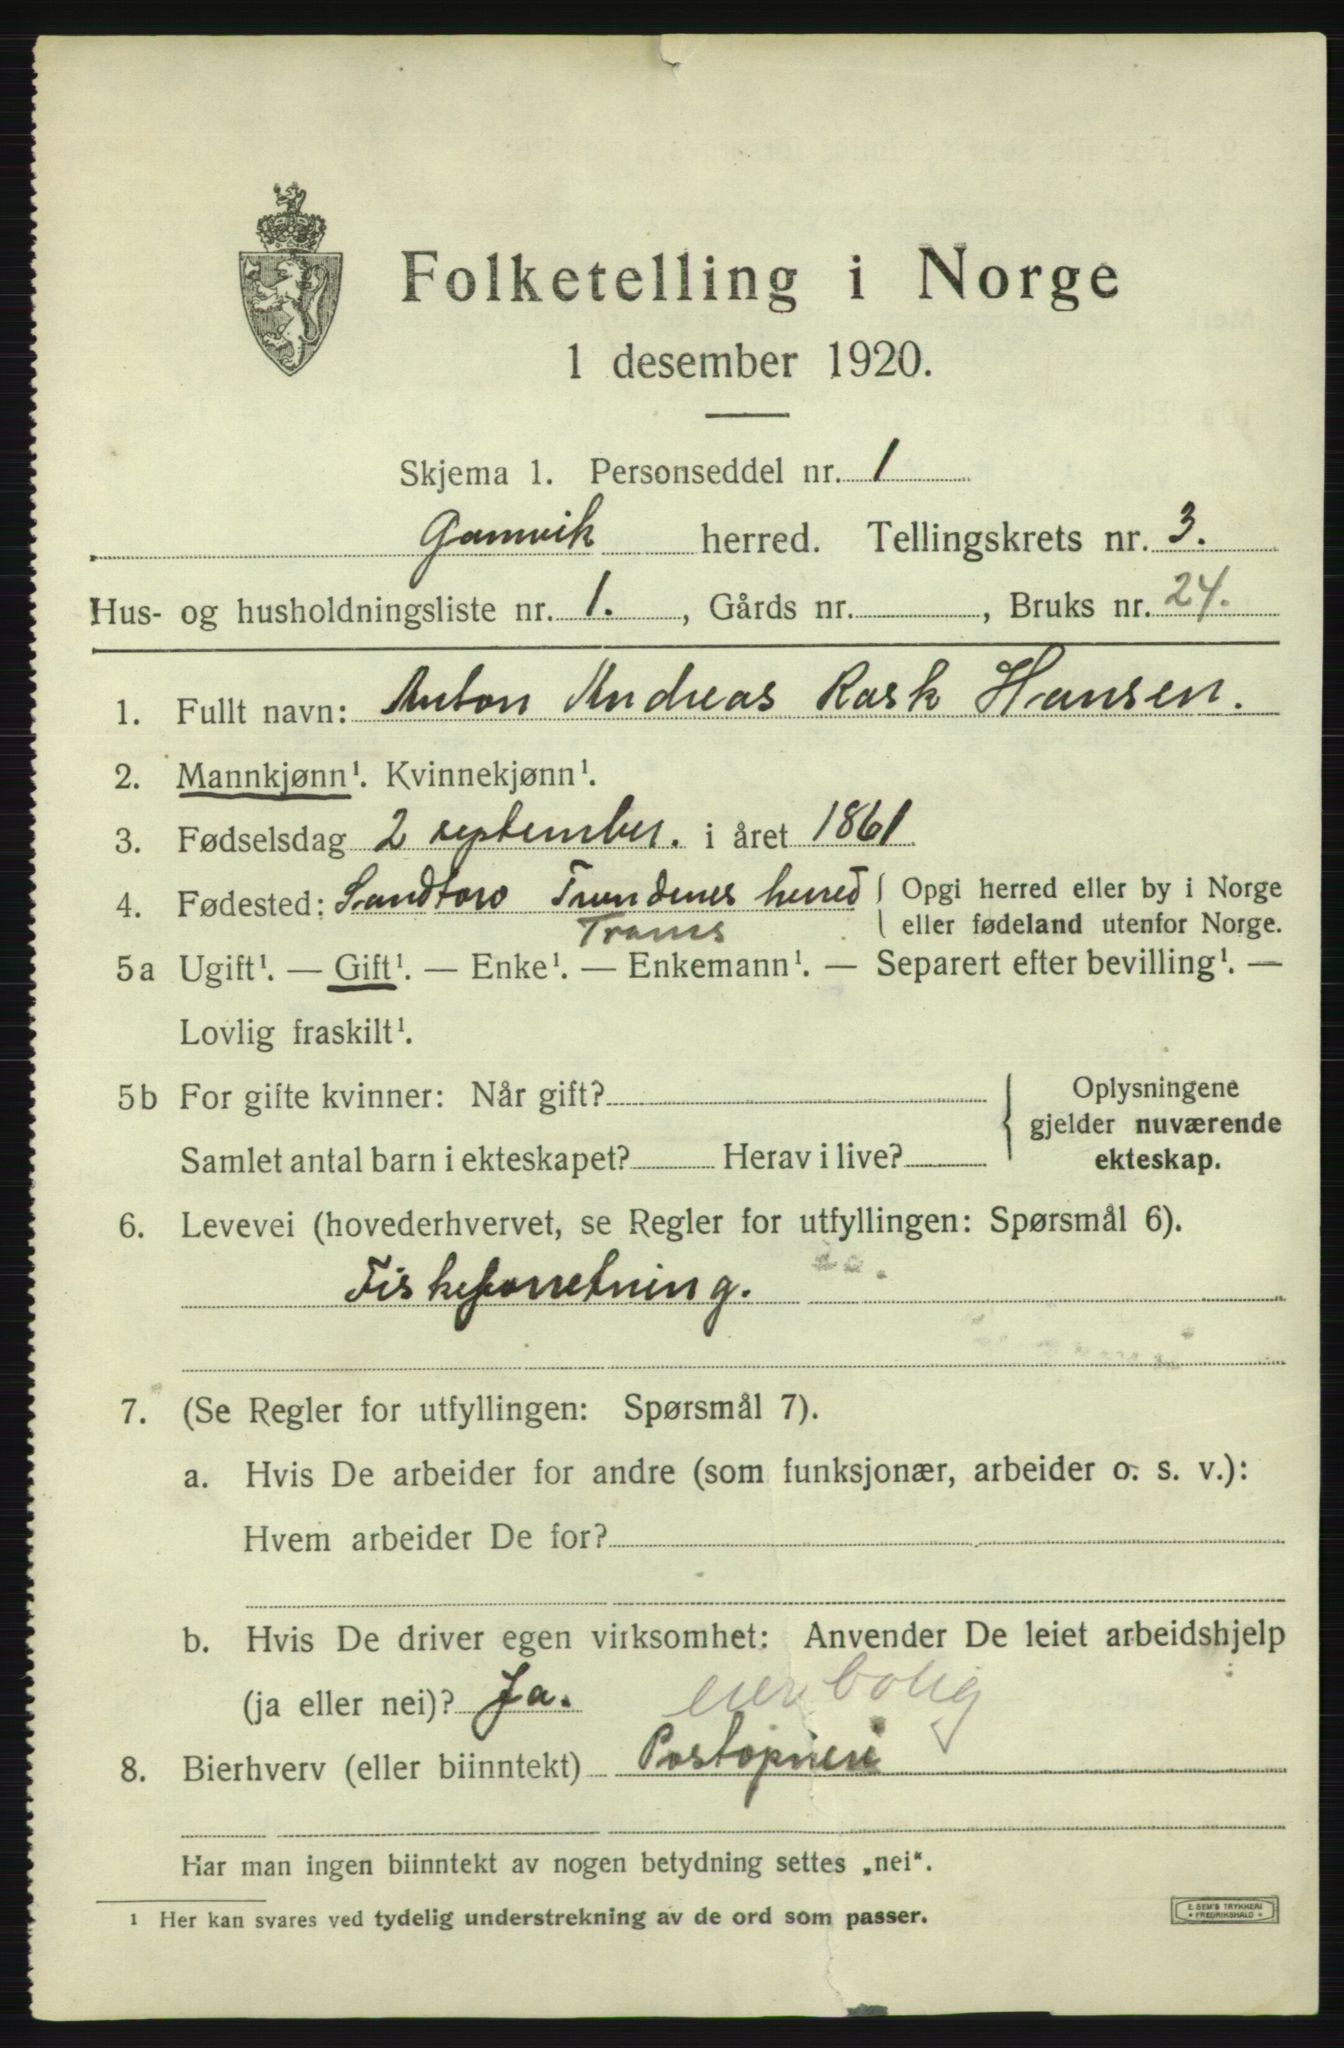 Folketelling i Norge
1 desember 1920.
Skjema 1. Personseddel nr. 1
Gamvik herred. Tellingskrets nr. 3.
Hus- og husholdningsliste nr. 1. , Gårds nr. , Bruks nr. 24.
1. Fullt navn: Anton Andreas Rask Hansen.
2. Mannkjønn¹. Kvinnekjønn¹.
3. Fødselsdag 2 september. i året 1861
4. Fødested: Sandtorv Trondenes herred Opgi herred eller by i Norge
Troms eller fødeland utenfor Norge.
5a Ugift¹. — Gift¹. — Enke¹. — Enkemann¹. — Separert efter bevilling¹. —
Lovlig fraskilt¹.
5b For gifte kvinner: Når gift? Oplysningene
gjelder nuværende
Samlet antal barn i ekteskapet? Herav i live? ekteskap.
6. Levevei (hovederhvervet, se Regler for utfyllingen: Spørsmål 6).
Fiskeforretning.
7. (Se Regler for utfyllingen: Spørsmål 7).
a. Hvis De arbeider for andre (som funksjonær, arbeider o. s. v.):
Hvem arbeider De for?
b. Hvis De driver egen virksomhet: Anvender De leiet arbeidshjelp
(ja eller nei)? Ja. eier bolig
8. Bierhverv (eller biinntekt) Postopneri
Har man ingen biinntekt av nogen betydning settes „nei“.
¹ Her kan svares ved tydelig understrekning av de ord som passer.
E. SEM'S TRYKKERI
FREDRIKSHALD